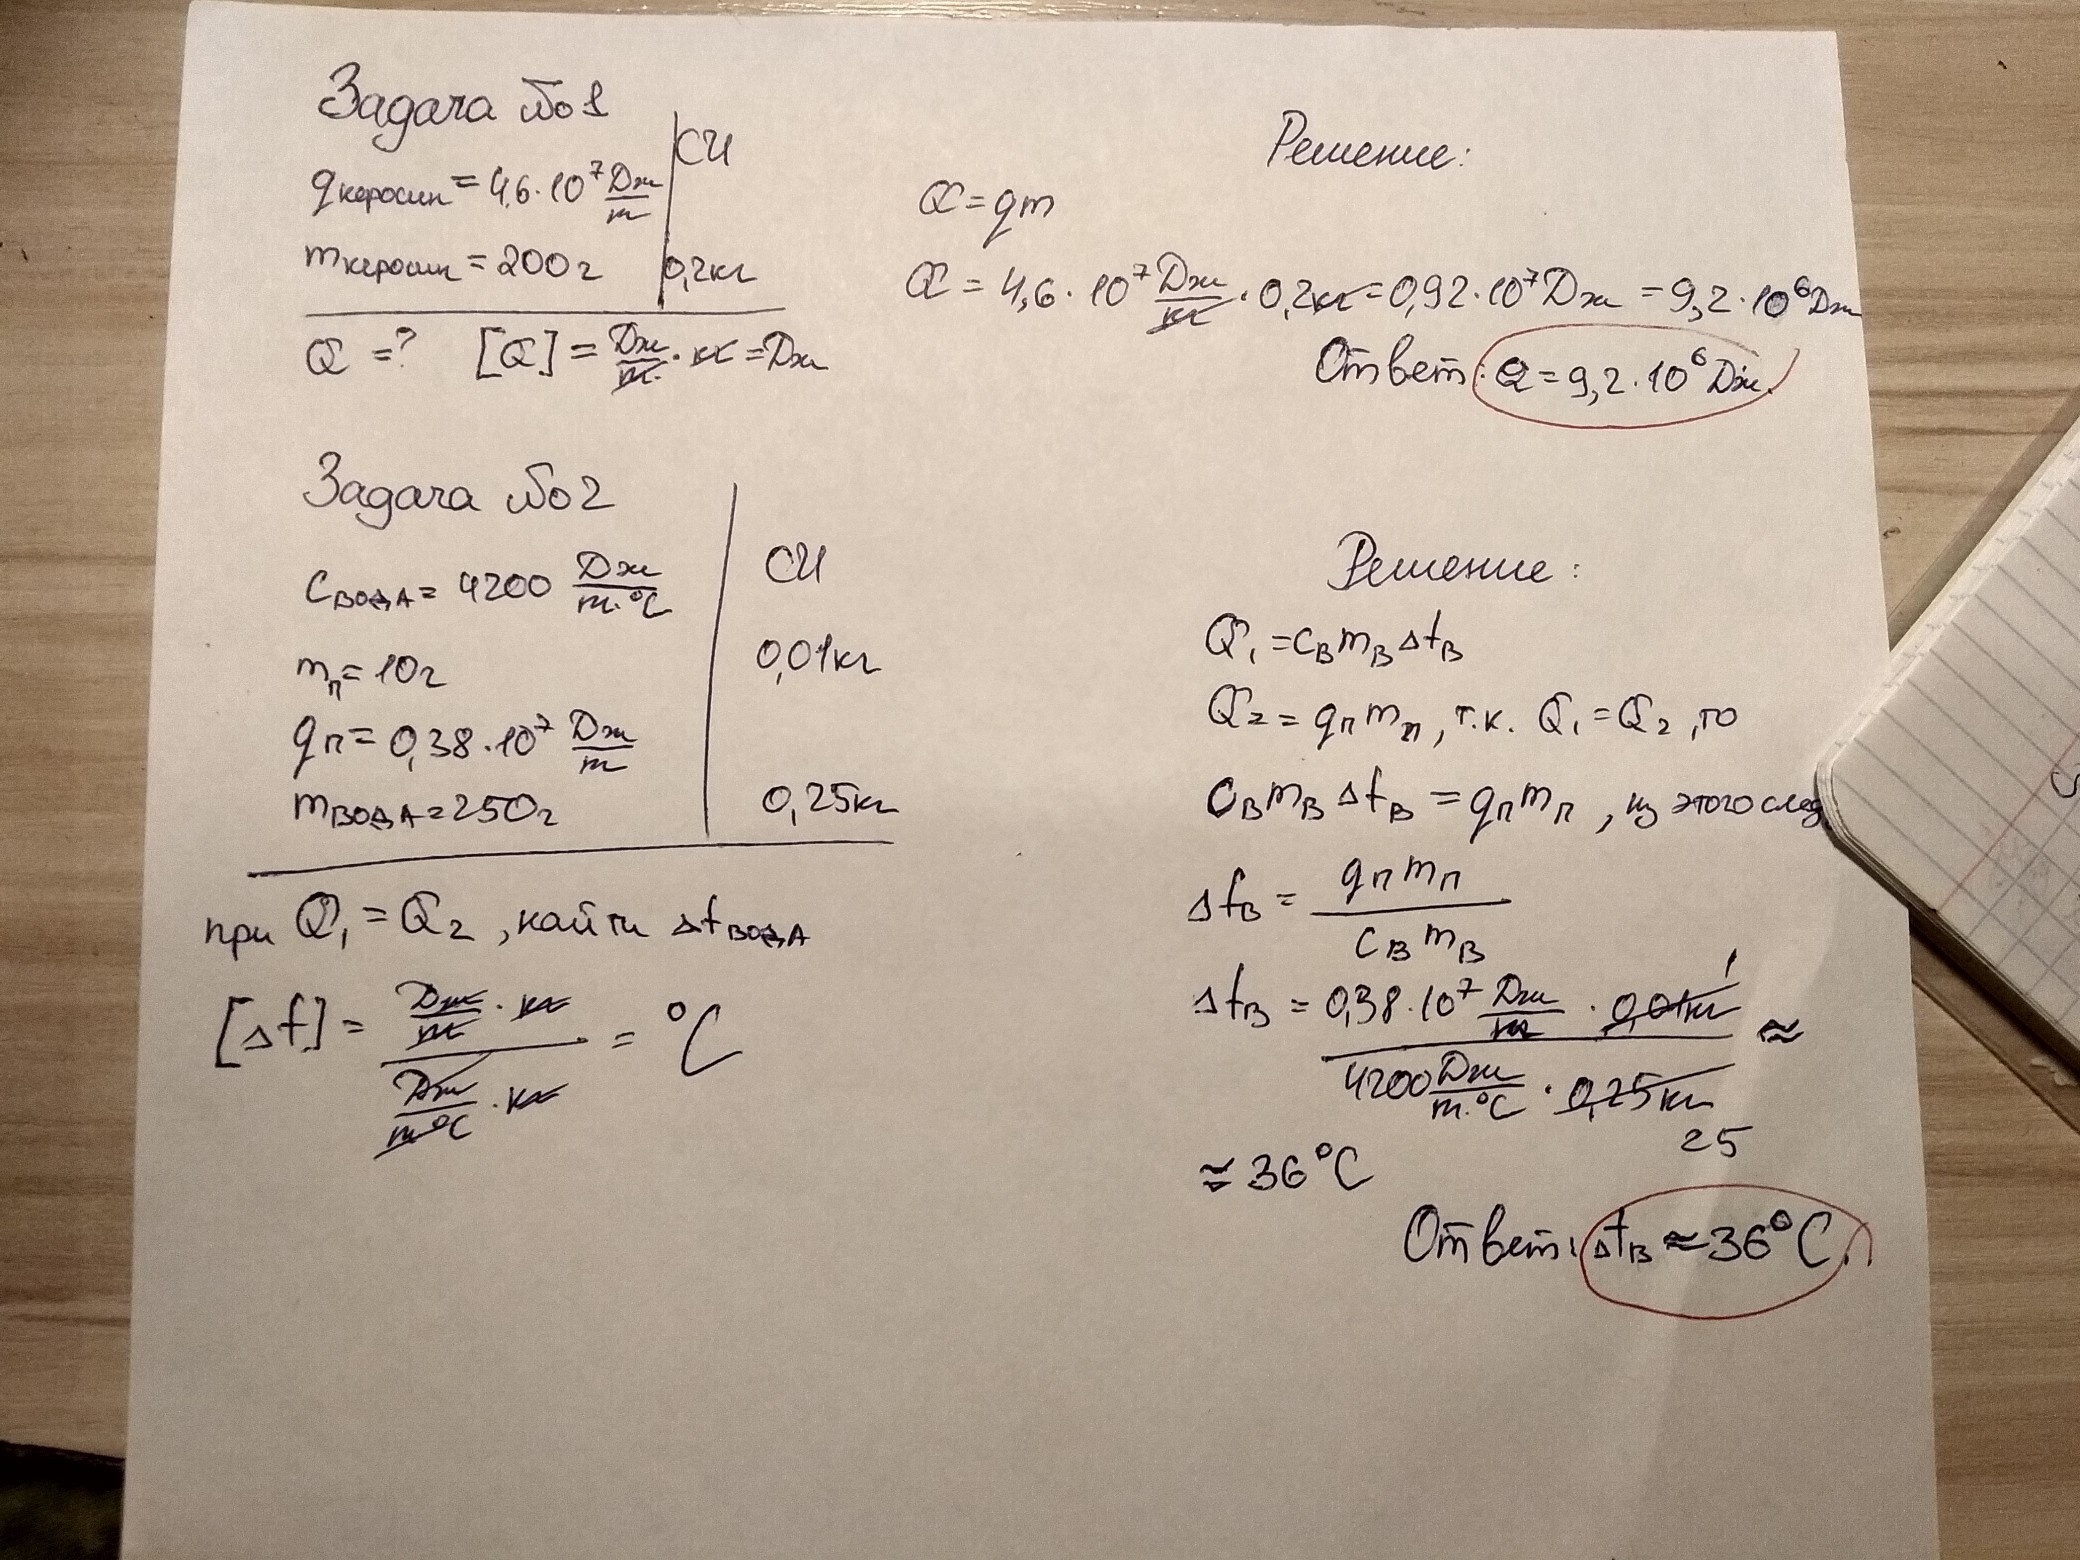 Задача №1
СИ
qкеросин = 4,6·10⁷ Дж/m
mкеросин = 200г 0,2кг
Q = ? [Q] = Дж/кг · кг = Дж
Решение:
Q = qm
Q = 4,6·10⁷ Дж/кг · 0,2кг = 0,92·10⁷ Дж = 9,2·10⁶ Дж
Ответ: Q = 9,2·10⁶ Дж.
Задача №2
СИ
cВОДА = 4200 Дж/m·°C
mп = 10г 0,01кг
qп = 0,38·10⁷ Дж/m
mВОДА = 250г 0,25кг
при Q₁ = Q₂, найти ΔtВОДА
[Δt] = Дж/кг · кг / Дж/m°C · кг = °C
Решение:
Q₁ = cВmВΔtВ
Q₂ = qпmп, т.к. Q₁ = Q₂, то
cВmВΔtВ = qпmп, из этого след
ΔtВ = qпmп / cВmВ
ΔtВ = 0,38·10⁷ Дж/кг · 0,01кг 1 / 4200 Дж/m·°C · 0,25кг 25 ≈
≈ 36°C
Ответ: ΔtВ ≈ 36°C.